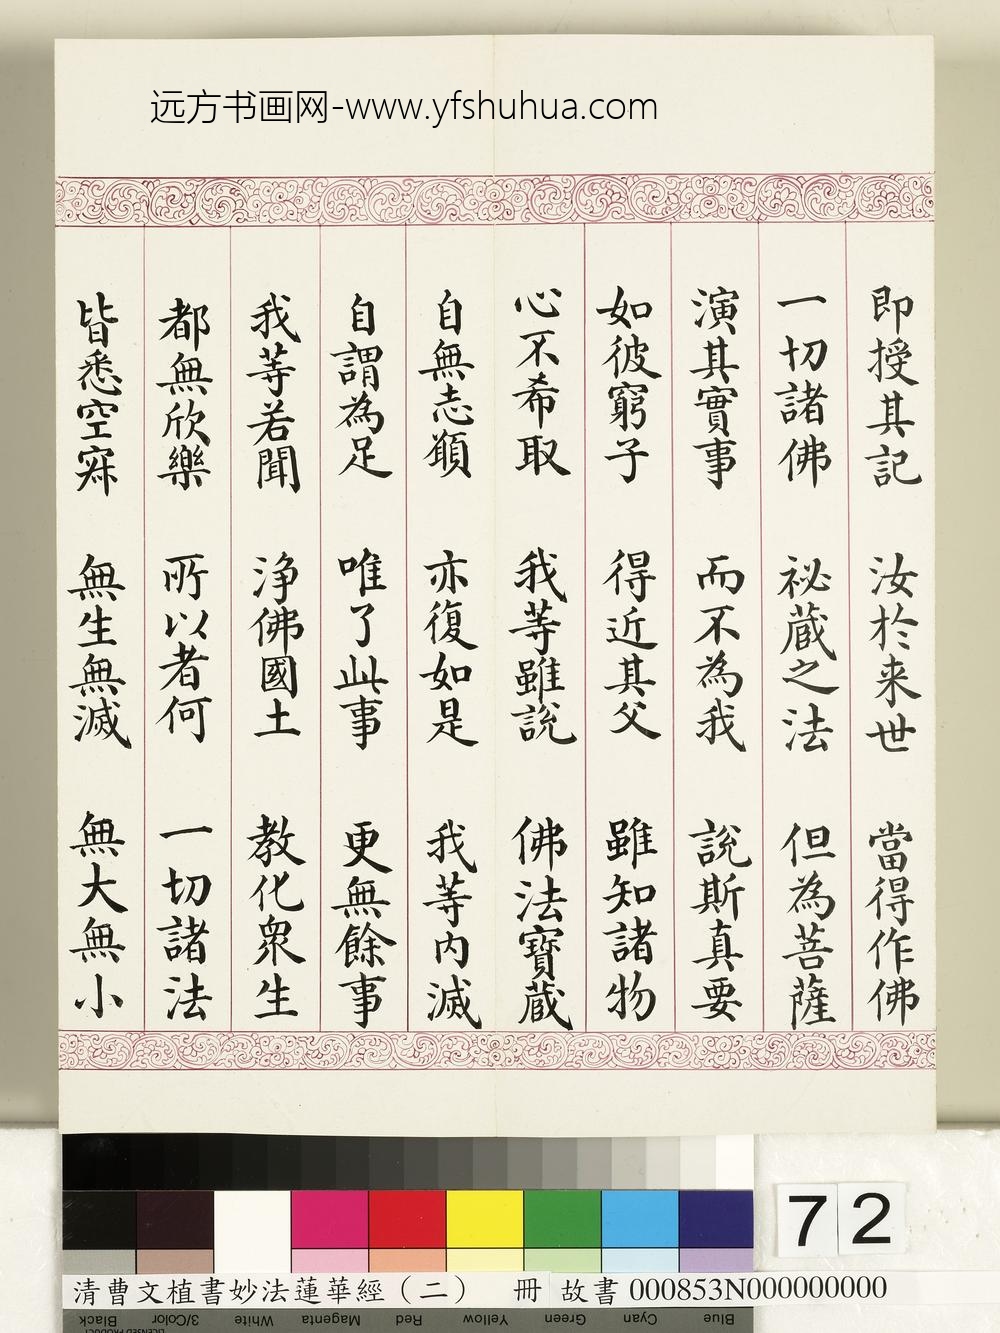 远方书画网-www.yfshuhua.com
即授其記 汝於来世 當得作佛
一切諸佛 祕蔵之法 但為菩薩
演其實事 而不為我 說斯真要
如彼窮子 得近其父 雖知諸物
心不希取 我等雖說 佛法寶蔵
自無志願 亦復如是 我等内滅
自謂為足 唯了此事 更無餘事
我等若聞 淨佛國土 教化衆生
都無欣樂 所以者何 一切諸法
皆悉空寂 無生無滅 無大無小
72
清曹文植書妙法蓮華經（二） 冊 故書 000853N000000000
Black 3/Color White Magenta Red Yellow Green Cyan Blue